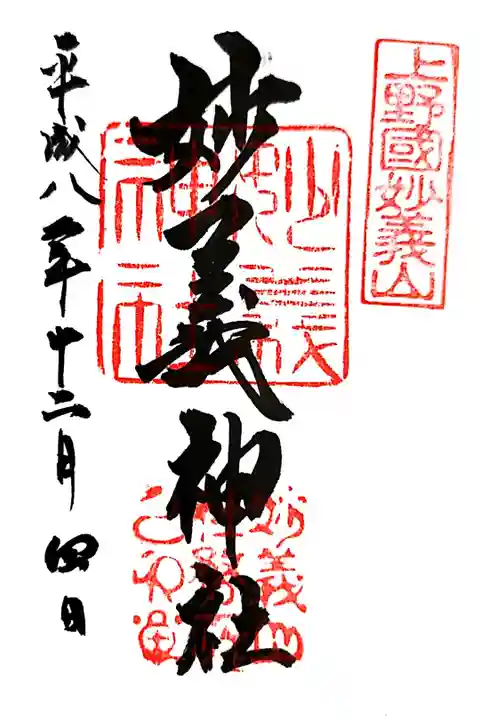 上野國妙義山
妙義神社
妙義神社
平成八年十二月四日
妙義山